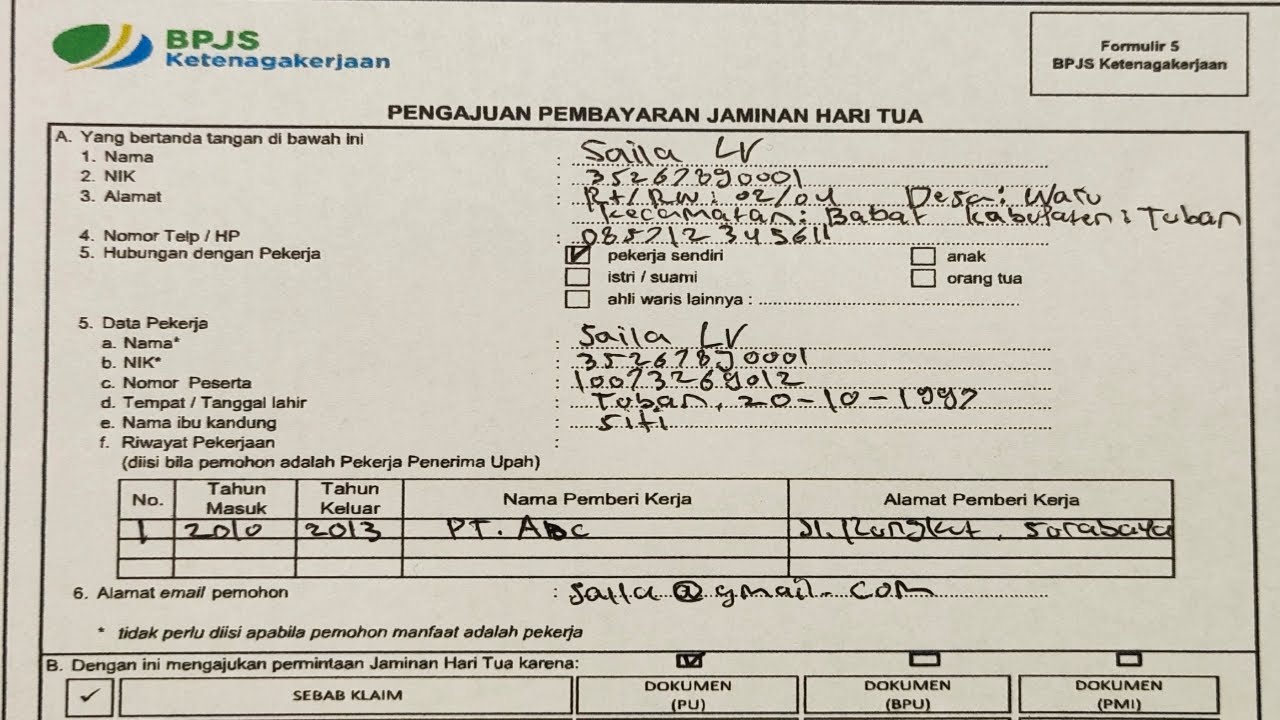 BPJS
Ketenagakerjaan
Formulir 5
BPJS Ketenagakerjaan
PENGAJUAN PEMBAYARAN JAMINAN HARI TUA
A. Yang bertanda tangan di bawah ini
1. Nama : Saila LV
2. NIK : 35267890001
3. Alamat : Rt/RW : 02/04 Desa: Waru
Kecamatan: Babat Kabupaten: Tuban
4. Nomor Telp / HP : 085712345611
5. Hubungan dengan Pekerja pekerja sendiri anak
istri / suami orang tua
ahli waris lainnya :
5. Data Pekerja
a. Nama* : Saila LV
b. NIK* : 35267890001
c. Nomor Peserta : 10073269012
d. Tempat / Tanggal lahir : Tuban, 20-10-1997
e. Nama ibu kandung : Siti
f. Riwayat Pekerjaan :
(diisi bila pemohon adalah Pekerja Penerima Upah)
No. Tahun Masuk Tahun Keluar Nama Pemberi Kerja Alamat Pemberi Kerja
1 2010 2013 PT. Abc Jl. Rungkut, Surabaya
6. Alamat email pemohon : saila@gmail.com
* tidak perlu diisi apabila pemohon manfaat adalah pekerja
B. Dengan ini mengajukan permintaan Jaminan Hari Tua karena:
SEBAB KLAIM DOKUMEN (PU) DOKUMEN (BPU) DOKUMEN (PMI)